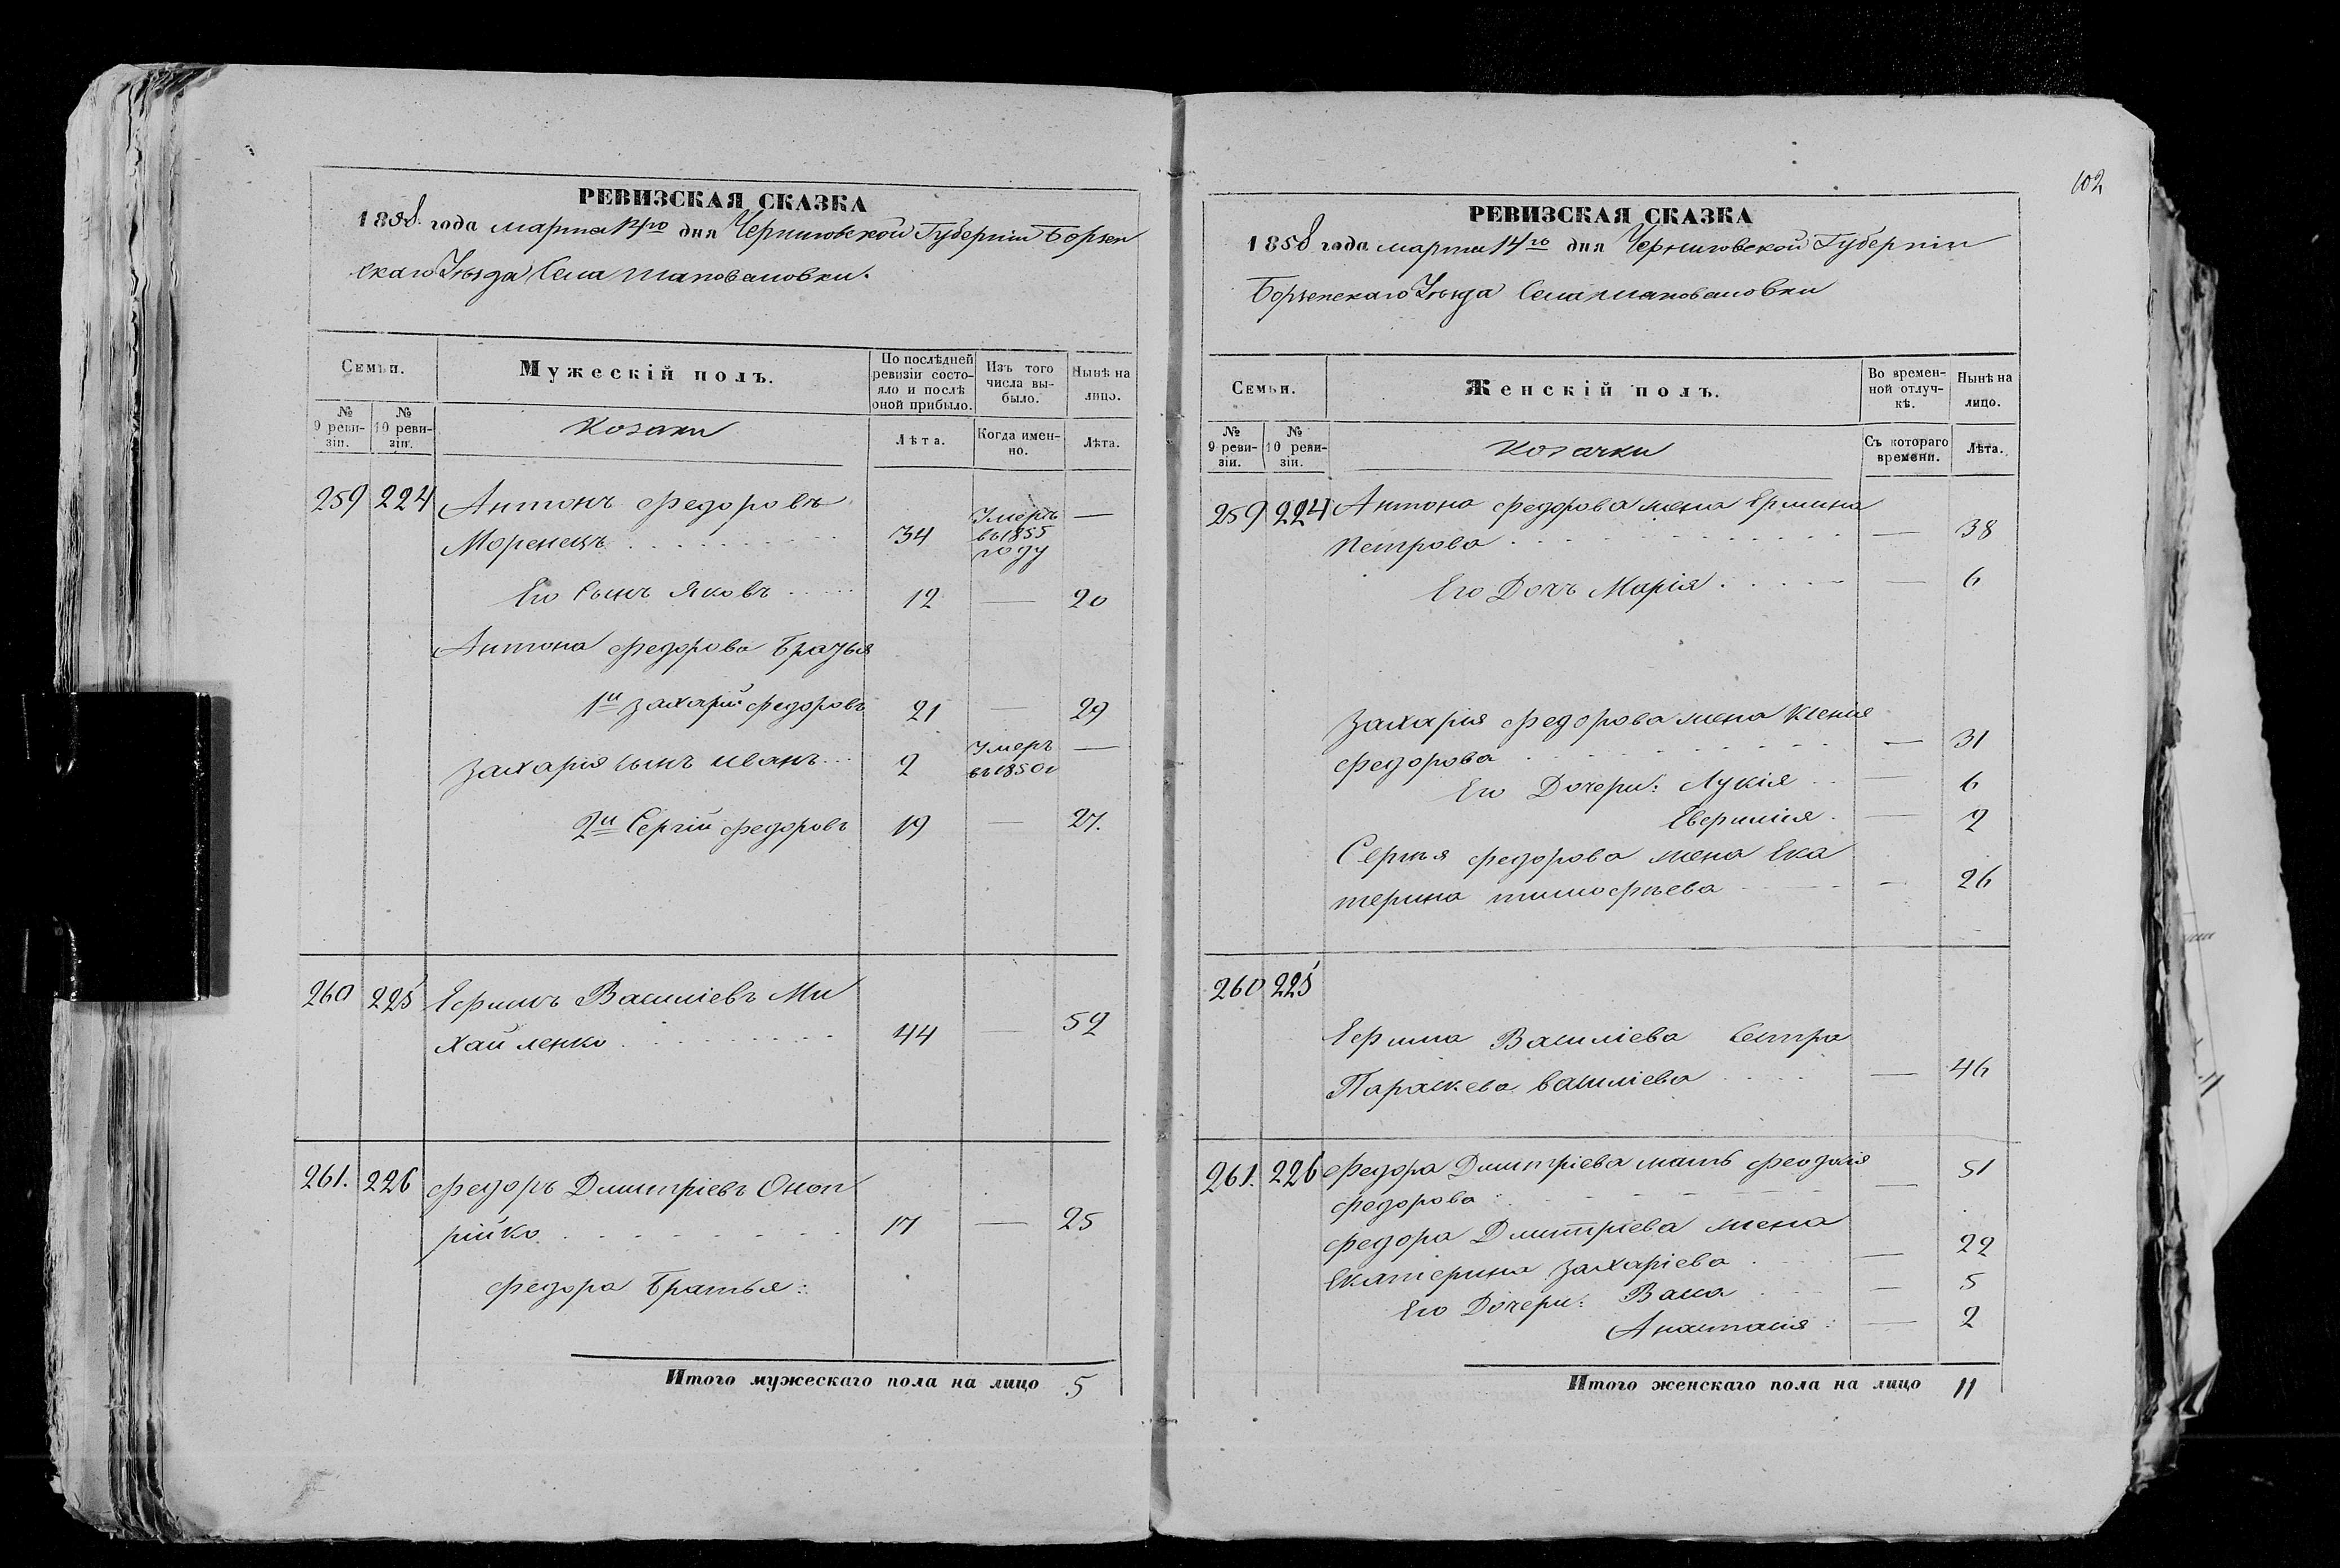 РЕВИЗСКАЯ СКАЗКА
1858. года марта 14го дня Черниговской Губерніи Борзен
скаго Уѣзда Села Шаповаловки.
Семьи.
Мужескій полъ.
По послѣдней ревизіи состояло и послѣ оной прибыло.
Изъ того числа выбыло.
Нынѣ на лицо.
№ 9 ревизіи.
№ 10 ревизіи.
Козаки
Лѣта.
Когда именно.
Лѣта.
259 224 Антонъ Федоровъ
Моренецъ 34 Умеръ въ 1855 году —
Его Сынъ Яковъ 12 — 20
Антона Федорова Братья
1й Захарій Федоровъ 21 — 29
Захарія сынъ Иванъ 2 Умеръ въ 1850г —
2й Сергій Федоровъ 19 — 27.
260 225 Ефимъ Василіевъ Ми
хайленко 44 — 52
261. 226 Федоръ Дмитріевъ Оноп
рійко 17 — 25
Федора Братья:
Итого мужескаго пола на лицо 5
102
РЕВИЗСКАЯ СКАЗКА
1858 года марта 14го дня Черниговской Губерніи
Борзенскаго Уѣзда Села Шаповаловки
Семьи.
Женскій полъ.
Во временной отлучкѣ.
Нынѣ на лицо.
№ 9 ревизіи.
№ 10 ревизіи.
Козачки
Съ котораго времени.
Лѣта.
259 224 Антона Федорова жена
Петрова — 38
Его Дочь Марія — 6
Захарія Федорова жена Ксенія
Федорова — 31
Его Дочери: Лукія — 6
— 2
Сергѣя Федорова жена Ека
терина Тимофѣева — 26
260 225
Ефима Василіева Сестра
Параскева Василіева — 46
261. 226 Федора Дмитріева мать
Федорова — 51
Федора Дмитріева жена
Екатерина Захаріева — 22
Его Дочери: Васа — 5
Анастасія — 2
Итого женскаго пола на лицо 11